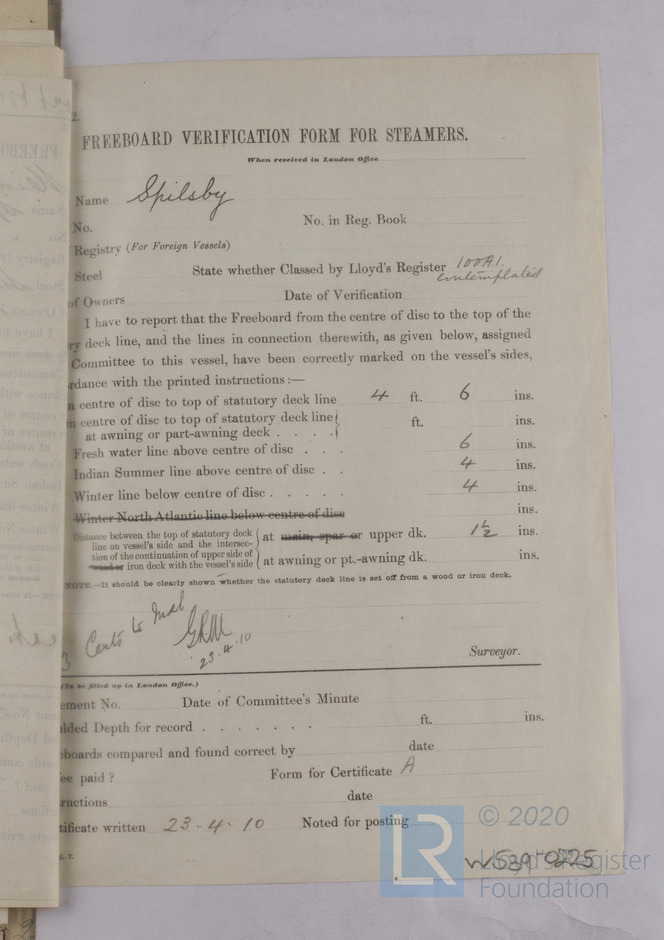 2.
FREEBOARD VERIFICATION FORM FOR STEAMERS.
When received in London Office
Name Spilsby
No. No. in Reg. Book
Registry (For Foreign Vessels)
Steel State whether Classed by Lloyd's Register 100A1. contemplated
of Owners Date of Verification
I have to report that the Freeboard from the centre of disc to the top of the
ry deck line, and the lines in connection therewith, as given below, assigned
Committee to this vessel, have been correctly marked on the vessel's sides,
rdance with the printed instructions:—
centre of disc to top of statutory deck line 4 ft. 6 ins.
centre of disc to top of statutory deck line ft. ins.
at awning or part-awning deck . . . .
Fresh water line above centre of disc . . . 6 ins.
Indian Summer line above centre of disc . . 4 ins.
Winter line below centre of disc . . . . . 4 ins.
Winter North Atlantic line below centre of disc ins.
Distance between the top of statutory deck
line on vessel's side and the intersec- at main, spar or upper dk. 1½ ins.
tion of the continuation of upper side of
wood or iron deck with the vessel's side at awning or pt.-awning dk. ins.
NOTE.—It should be clearly shown whether the statutory deck line is set off from a wood or iron deck.
3 Certs to
23.4.10
Surveyor.
(To be filled up in London Office.)
ement No. Date of Committee's Minute
lded Depth for record . . . . . . . ft. ins.
boards compared and found correct by date
ee paid ? Form for Certificate A
ructions date
tificate written 23-4-10 Noted for posting
© 2020
LR
Lloyd's Register
Foundation
W539-0225